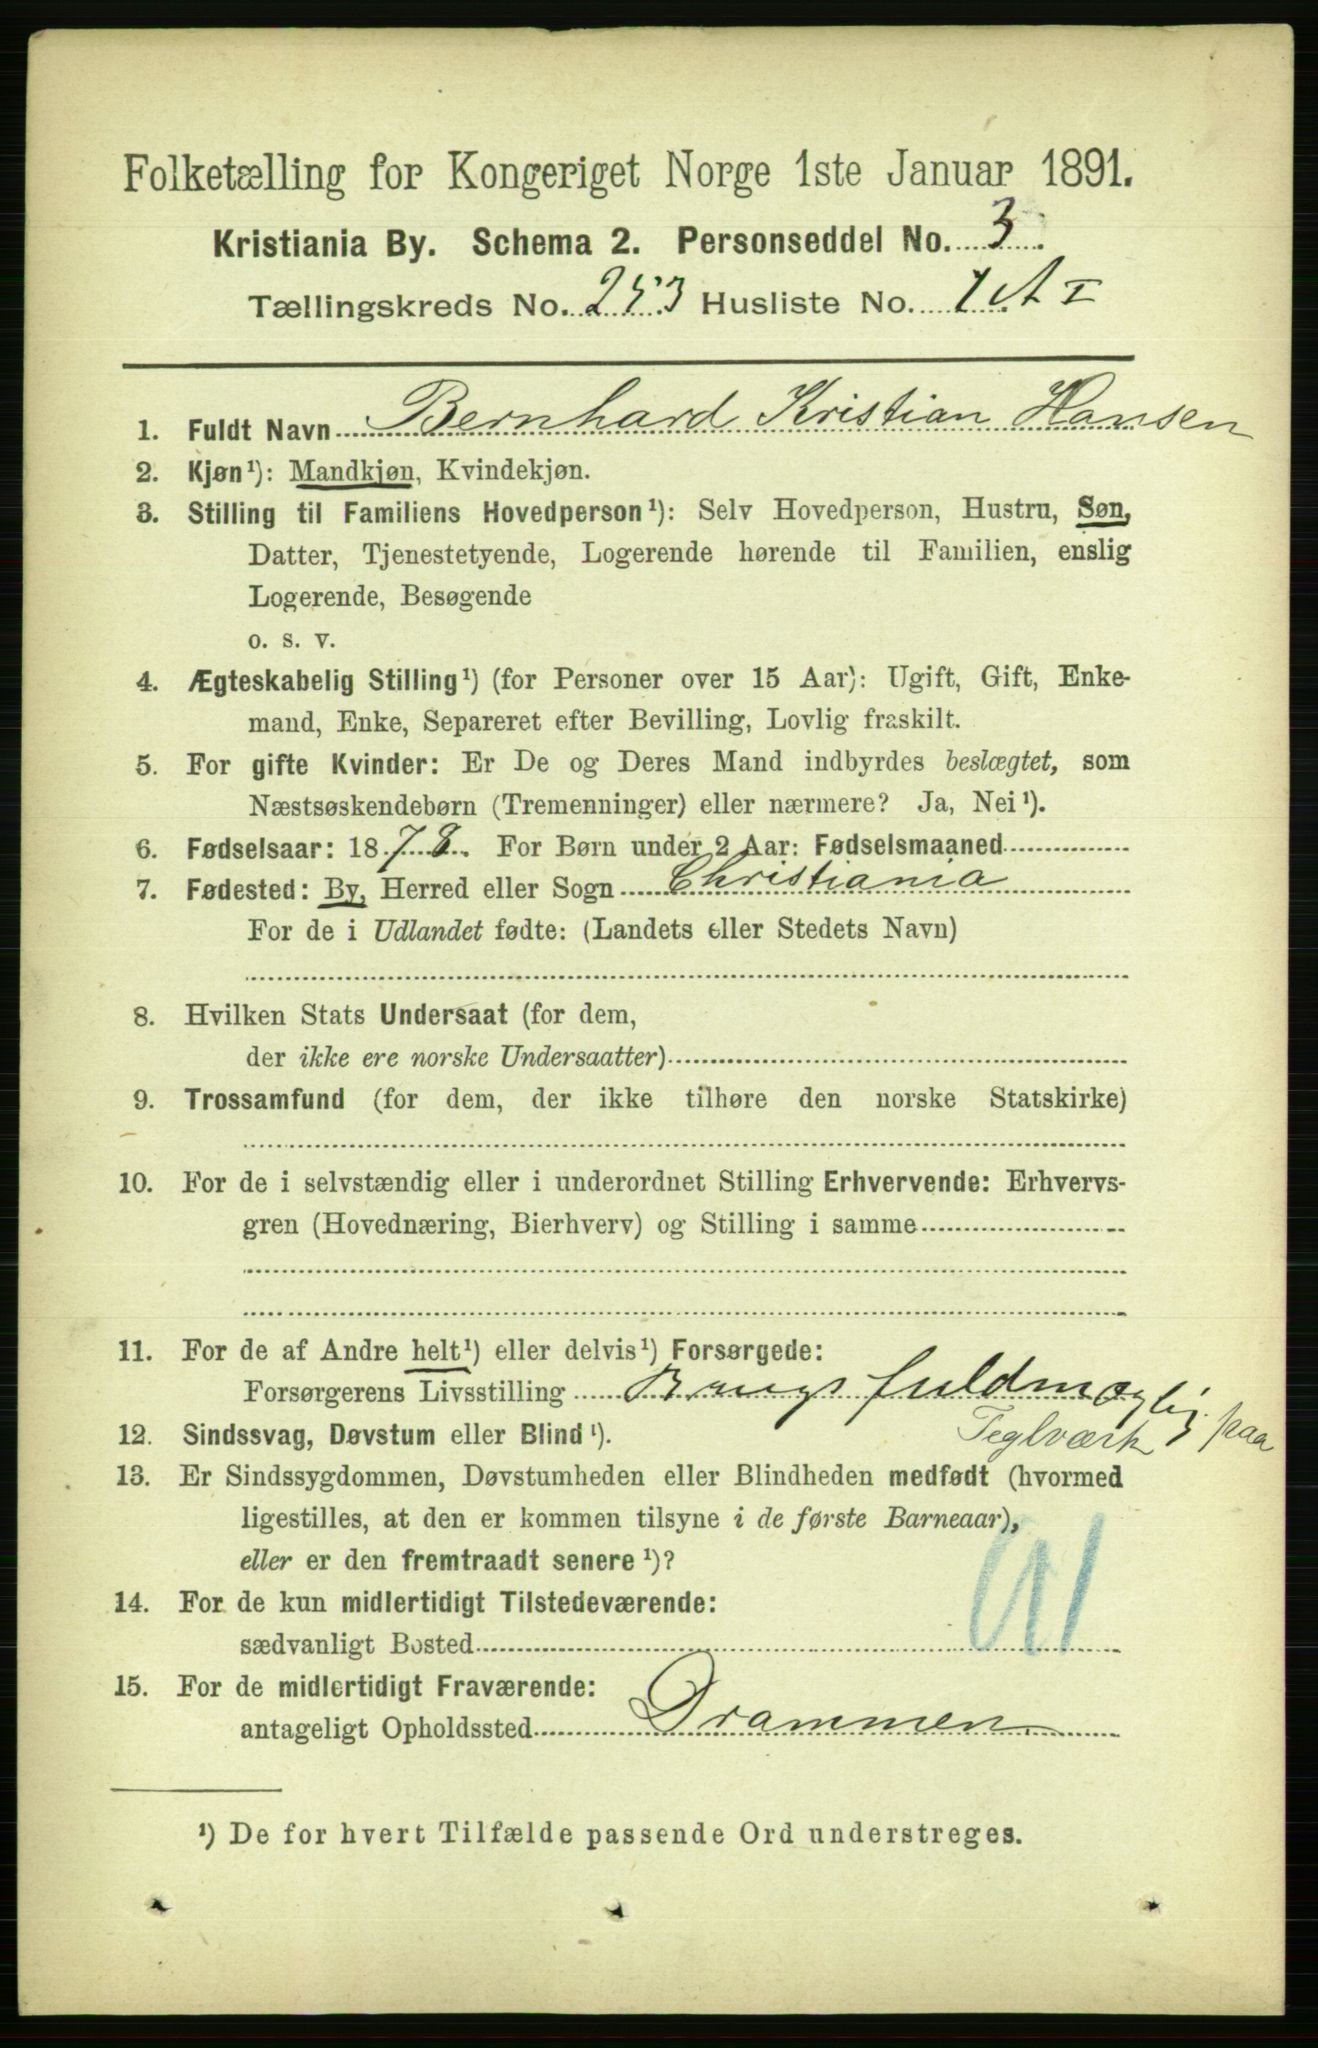 Folketælling for Kongeriget Norge 1ste Januar 1891.
Kristiania By. Schema 2. Personseddel No. 3.
Tællingskreds No. 253 Husliste No. 1 A I
1. Fuldt Navn Bernhard Kristian Hansen
2. Kjøn¹): Mandkjøn, Kvindekjøn.
3. Stilling til Familiens Hovedperson¹): Selv Hovedperson, Hustru, Søn,
Datter, Tjenestetyende, Logerende hørende til Familien, enslig
Logerende, Besøgende
o. s. v.
4. Ægteskabelig Stilling¹) (for Personer over 15 Aar): Ugift, Gift, Enke-
mand, Enke, Separeret efter Bevilling, Lovlig fraskilt.
5. For gifte Kvinder: Er De og Deres Mand indbyrdes beslægtet, som
Næstsøskendebørn (Tremenninger) eller nærmere? Ja, Nei¹).
6. Fødselsaar: 1878. For Børn under 2 Aar: Fødselsmaaned
7. Fødested: By, Herred eller Sogn Christiania
For de i Udlandet fødte: (Landets eller Stedets Navn)
8. Hvilken Stats Undersaat (for dem,
der ikke ere norske Undersaatter)
9. Trossamfund (for dem, der ikke tilhøre den norske Statskirke)
10. For de i selvstændig eller i underordnet Stilling Erhvervende: Erhvervs-
gren (Hovednæring, Bierhverv) og Stilling i samme
11. For de af Andre helt¹) eller delvis¹) Forsørgede:
Forsørgerens Livsstilling Brugsfuldmægtig paa
Teglværk
12. Sindssvag, Døvstum eller Blind¹).
13. Er Sindssygdommen, Døvstumheden eller Blindheden medfødt (hvormed
ligestilles, at den er kommen tilsyne i de første Barneaar),
eller er den fremtraadt senere¹)?
14. For de kun midlertidigt Tilstedeværende:
sædvanligt Bosted
15. For de midlertidigt Fraværende:
antageligt Opholdssted Drammen
¹) De for hvert Tilfælde passende Ord understreges.